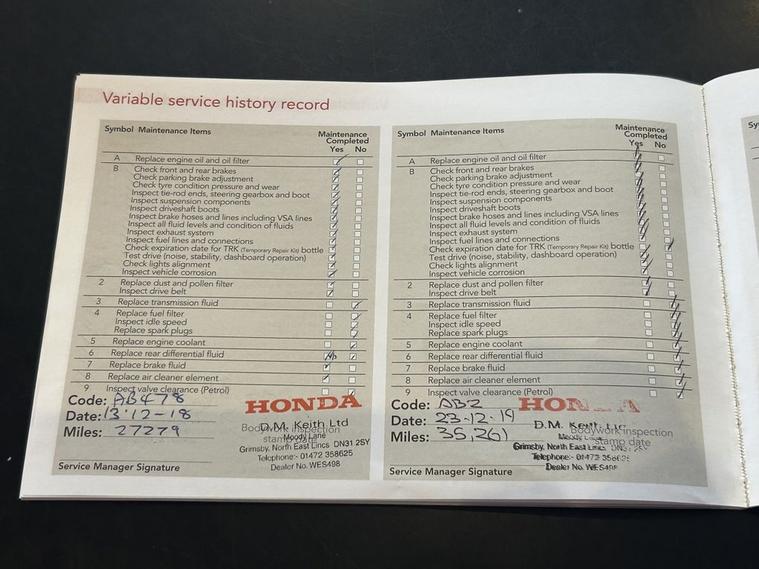 Variable service history record
Symbol Maintenance Items
Maintenance Completed
Yes No
A Replace engine oil and oil filter
B Check front and rear brakes
Check parking brake adjustment
Check tyre condition pressure and wear
Inspect tie-rod ends, steering gearbox and boot
Inspect suspension components
Inspect driveshaft boots
Inspect brake hoses and lines including VSA lines
Inspect all fluid levels and condition of fluids
Inspect exhaust system
Inspect fuel lines and connections
Check expiration date for TRK (Temporary Repair Kit) bottle
Test drive (noise, stability, dashboard operation)
Check lights alignment
Inspect vehicle corrosion
2 Replace dust and pollen filter
Inspect drive belt
3 Replace transmission fluid
4 Replace fuel filter
Inspect idle speed
Replace spark plugs
5 Replace engine coolant
6 Replace rear differential fluid
7 Replace brake fluid
8 Replace air cleaner element
9 Inspect valve clearance (Petrol)
Code: AB478
Date: 13.12-18
Miles: 27279
HONDA
D.M. Keith Ltd
Bodywork inspection
stamp date
Moody Lane
Grimsby, North East Lincs DN31 2SY
Telephone:- 01472 358625
Dealer No. WES498
Service Manager Signature
Symbol Maintenance Items
Maintenance Completed
Yes No
A Replace engine oil and oil filter
B Check front and rear brakes
Check parking brake adjustment
Check tyre condition pressure and wear
Inspect tie-rod ends, steering gearbox and boot
Inspect suspension components
Inspect driveshaft boots
Inspect brake hoses and lines including VSA lines
Inspect all fluid levels and condition of fluids
Inspect exhaust system
Inspect fuel lines and connections
Check expiration date for TRK (Temporary Repair Kit) bottle
Test drive (noise, stability, dashboard operation)
Check lights alignment
Inspect vehicle corrosion
2 Replace dust and pollen filter
Inspect drive belt
3 Replace transmission fluid
4 Replace fuel filter
Inspect idle speed
Replace spark plugs
5 Replace engine coolant
6 Replace rear differential fluid
7 Replace brake fluid
8 Replace air cleaner element
9 Inspect valve clearance (Petrol)
Code: AB2
Date: 23.12.19
Miles: 35,261
HONDA
D.M. Keith
Bodywork inspection
stamp date
Moody
Grimsby, North East Lincs
Telephone:- 01472
Dealer No. WES498
Service Manager Signature